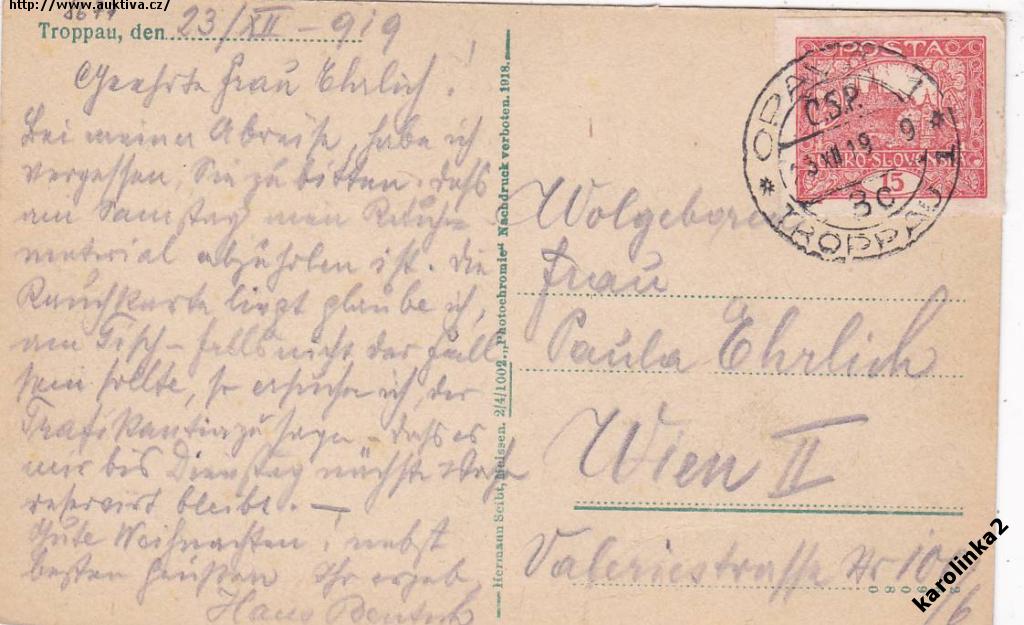 http://www.auktiva.cz/
Troppau, den 23/XII - 919
Geehrte Frau Ehrlich!
Bei meiner Abreise, habe ich
vergessen Sie zu bitten. dass
am Samstag mein Rauch-
material abzuholen ist. Die
Rauchkarte liegt glaube ich,
am Tisch - falls nicht der Fall
sein sollte, so ersuche ich, der
Trafikantin zu sagen - dass es
mir bis Dienstag nächste Woche
reserviert bleibt. —
Gute Weihnachten, nebst
besten Grüßen Ihr ergeb.
Hans
Hermann Seibt, Meissen. 2/4/1002. „Photochromie“ Nachdruck verboten. 1918.
POSTA
ČESKO-SLOVENSKÁ
15
OPAVA 1
Č.S.P.
23 XII 19 9
3c
TROPPAU 1
Wolgeboren
Frau
Paula Ehrlich
Wien II
Valeriestrasse Nr
karolinka2